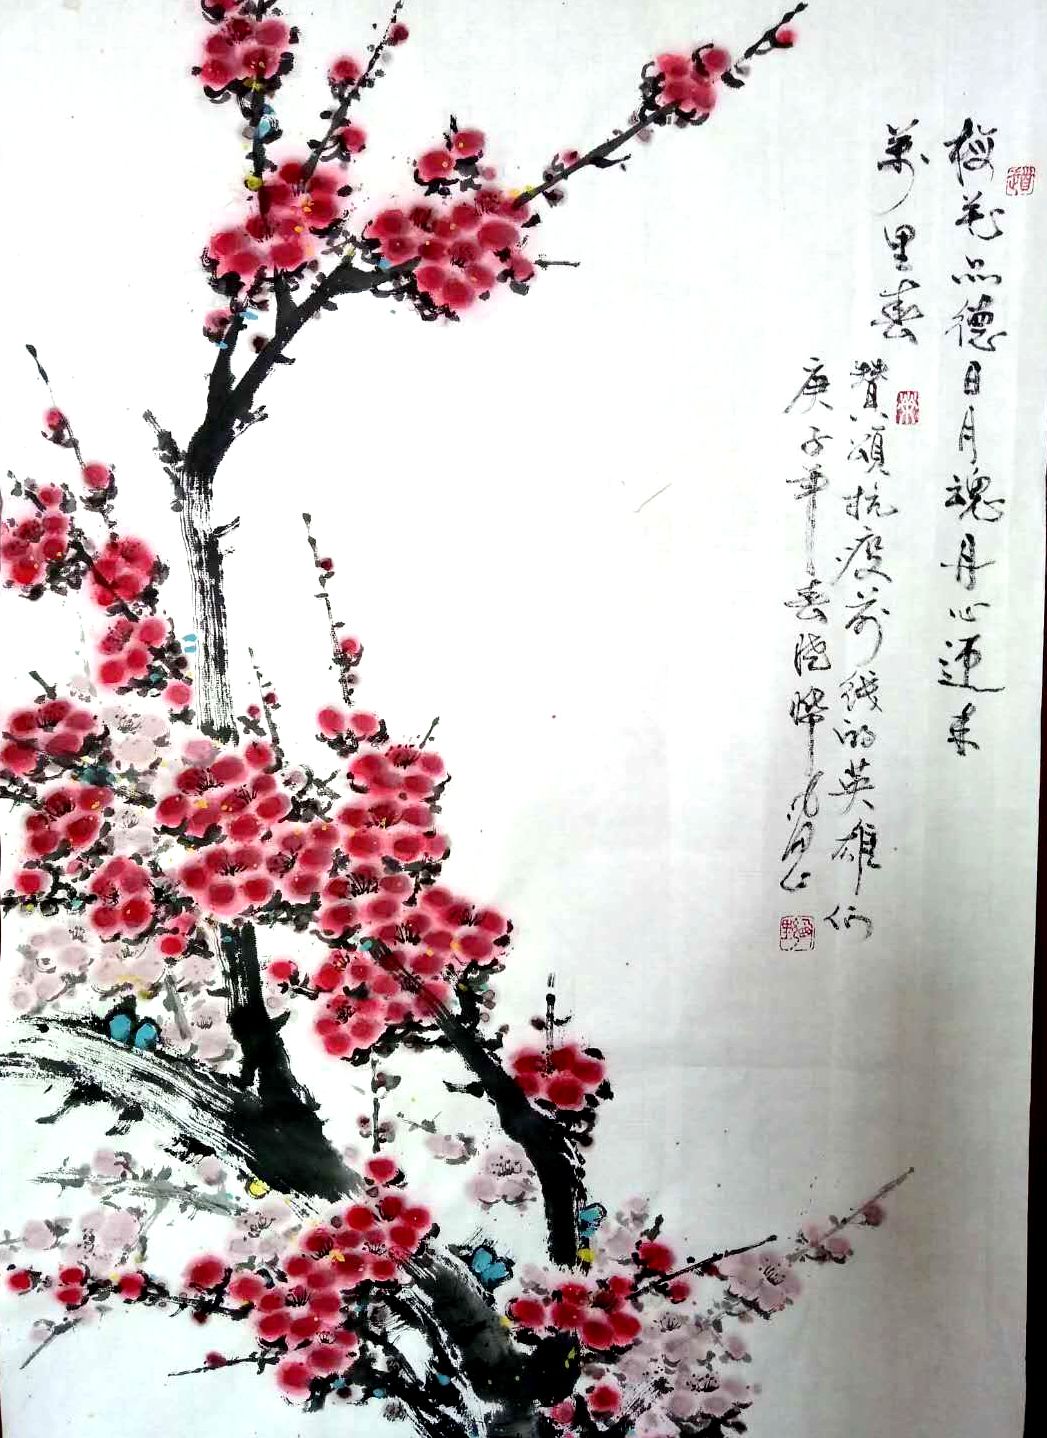 梅花品德日月魂丹心迎来
萬里春
赞颂抗疫前线的英雄们
庚子年春晓晔